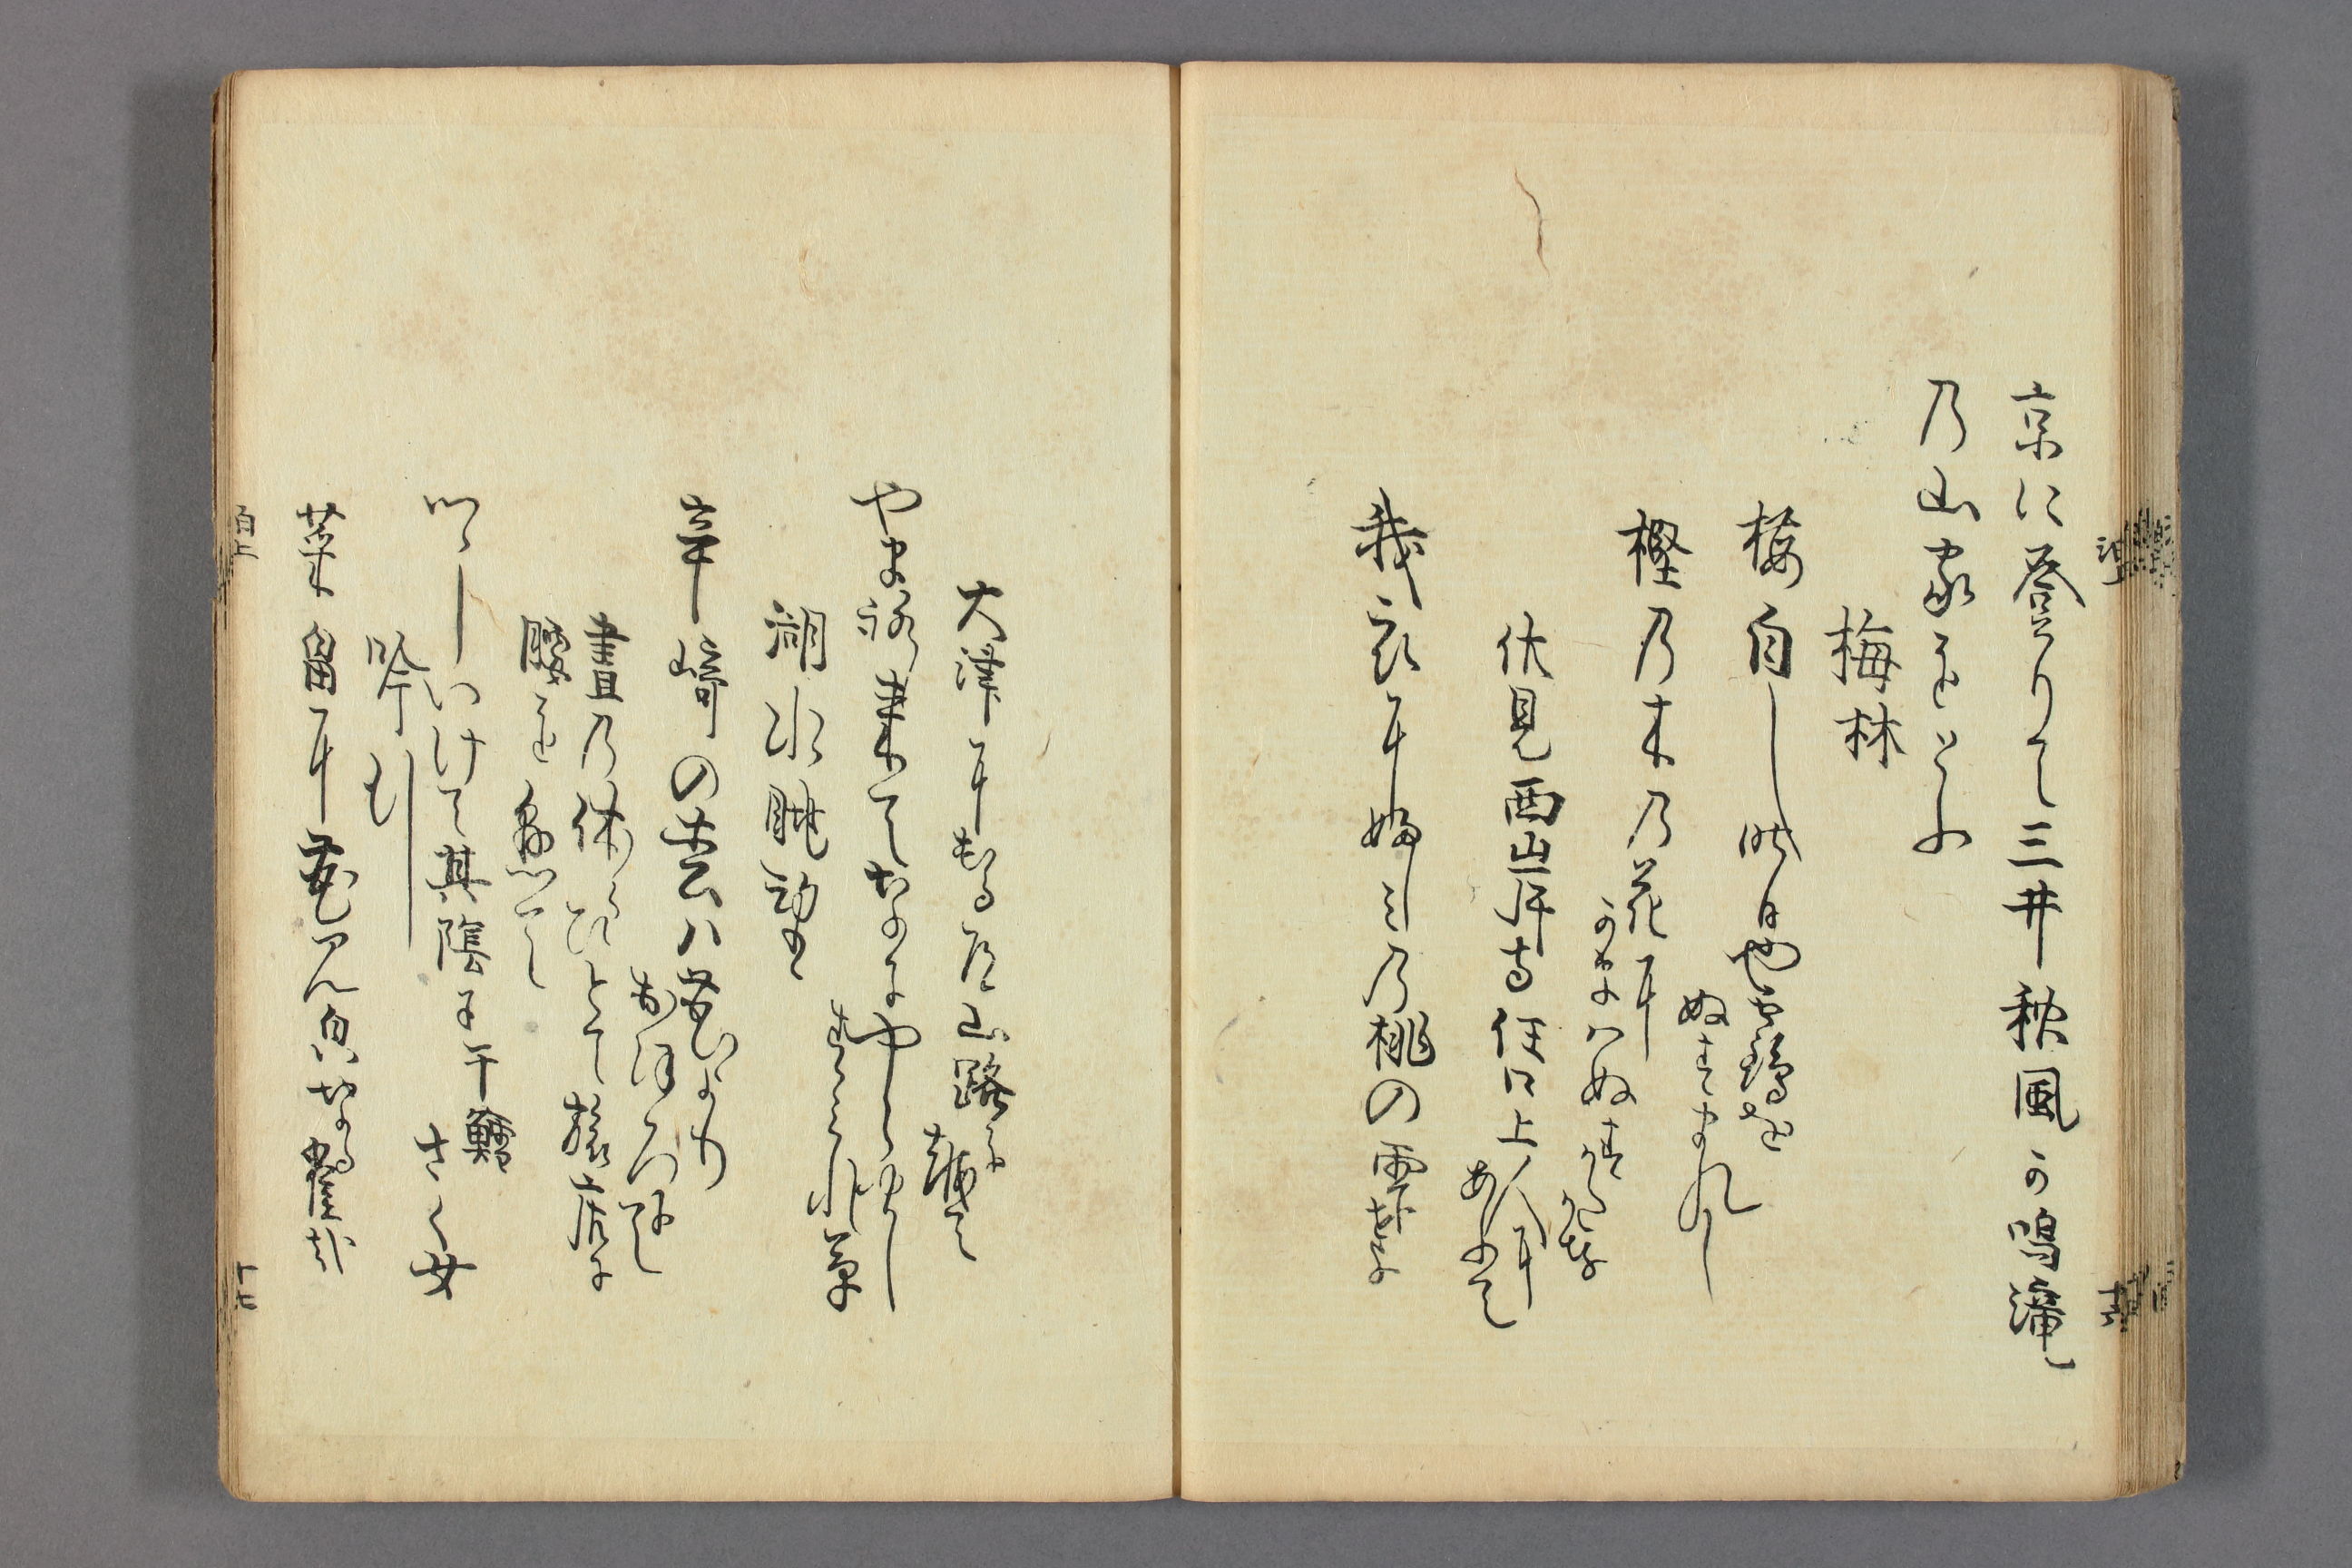 京に登りて三井秋風か鳴滝
乃山家をとふ
梅林
梅白し昨日や鶴を
ぬすまれし
樫乃木乃花耳
かまはぬすかたかな
伏見西岸寺任口上人耳
あふて
我衣耳婦しミ乃桃の雫せよ
大津耳出る道山路を
越て
やま路来てなにやらゆかし
すミれ草
湖水眺望
辛崎の松ハ花より
おほろにて
昼乃休らひとて旅店に
腰を懸て
つゝしいけて其陰に干鱈
さく女
吟行
菜畠耳花見顔なる雀哉
泊上
十七